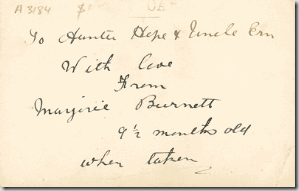 A 3184
To Auntie Hope & Uncle Ern
With love
From
Marjorie Burnett
9½ months old
when taken